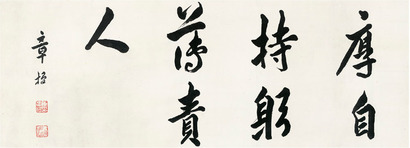 厚自
持躬
薄責
人
章梫